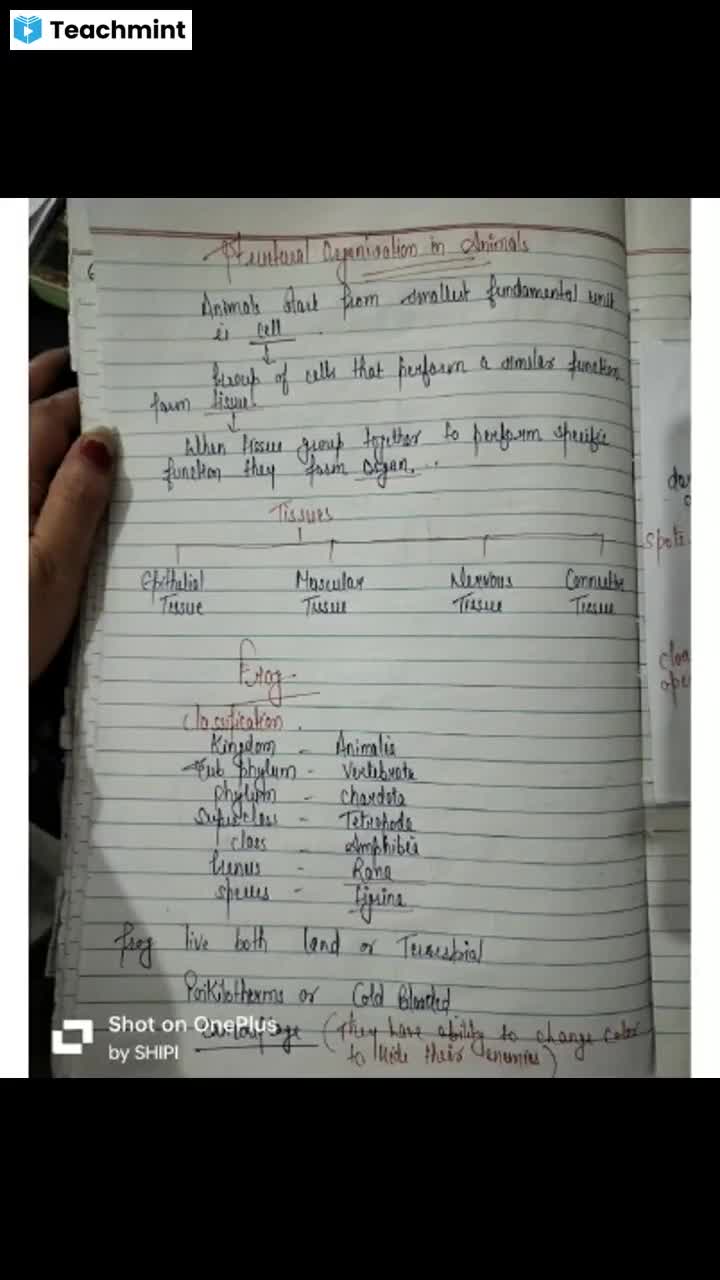 Teachmint
Structural Organisation in Animals
6
Animals start from smallest fundamental unit
is cell
Group of cells that perform a similar function
form tissue.
When tissue group together to perform specific
function they form organ...
Tissues
Epithelial Muscular Nervous Connective
Tissue Tissue Tissue Tissue
Frog
Classification.
Kingdom - Animalia
Sub phylum - Vertebrata
phylum - Chordata
Superclass - Tetrapoda
class - Amphibia
Genus - Rana
species - Tigrina
frog live both land or Terrestrial
Poikilotherms or Cold Blooded
Camouflage (They have ability to change color
to hide their enemies)
Shot on OnePlus
by SHIPI
spoti
cloa
ope